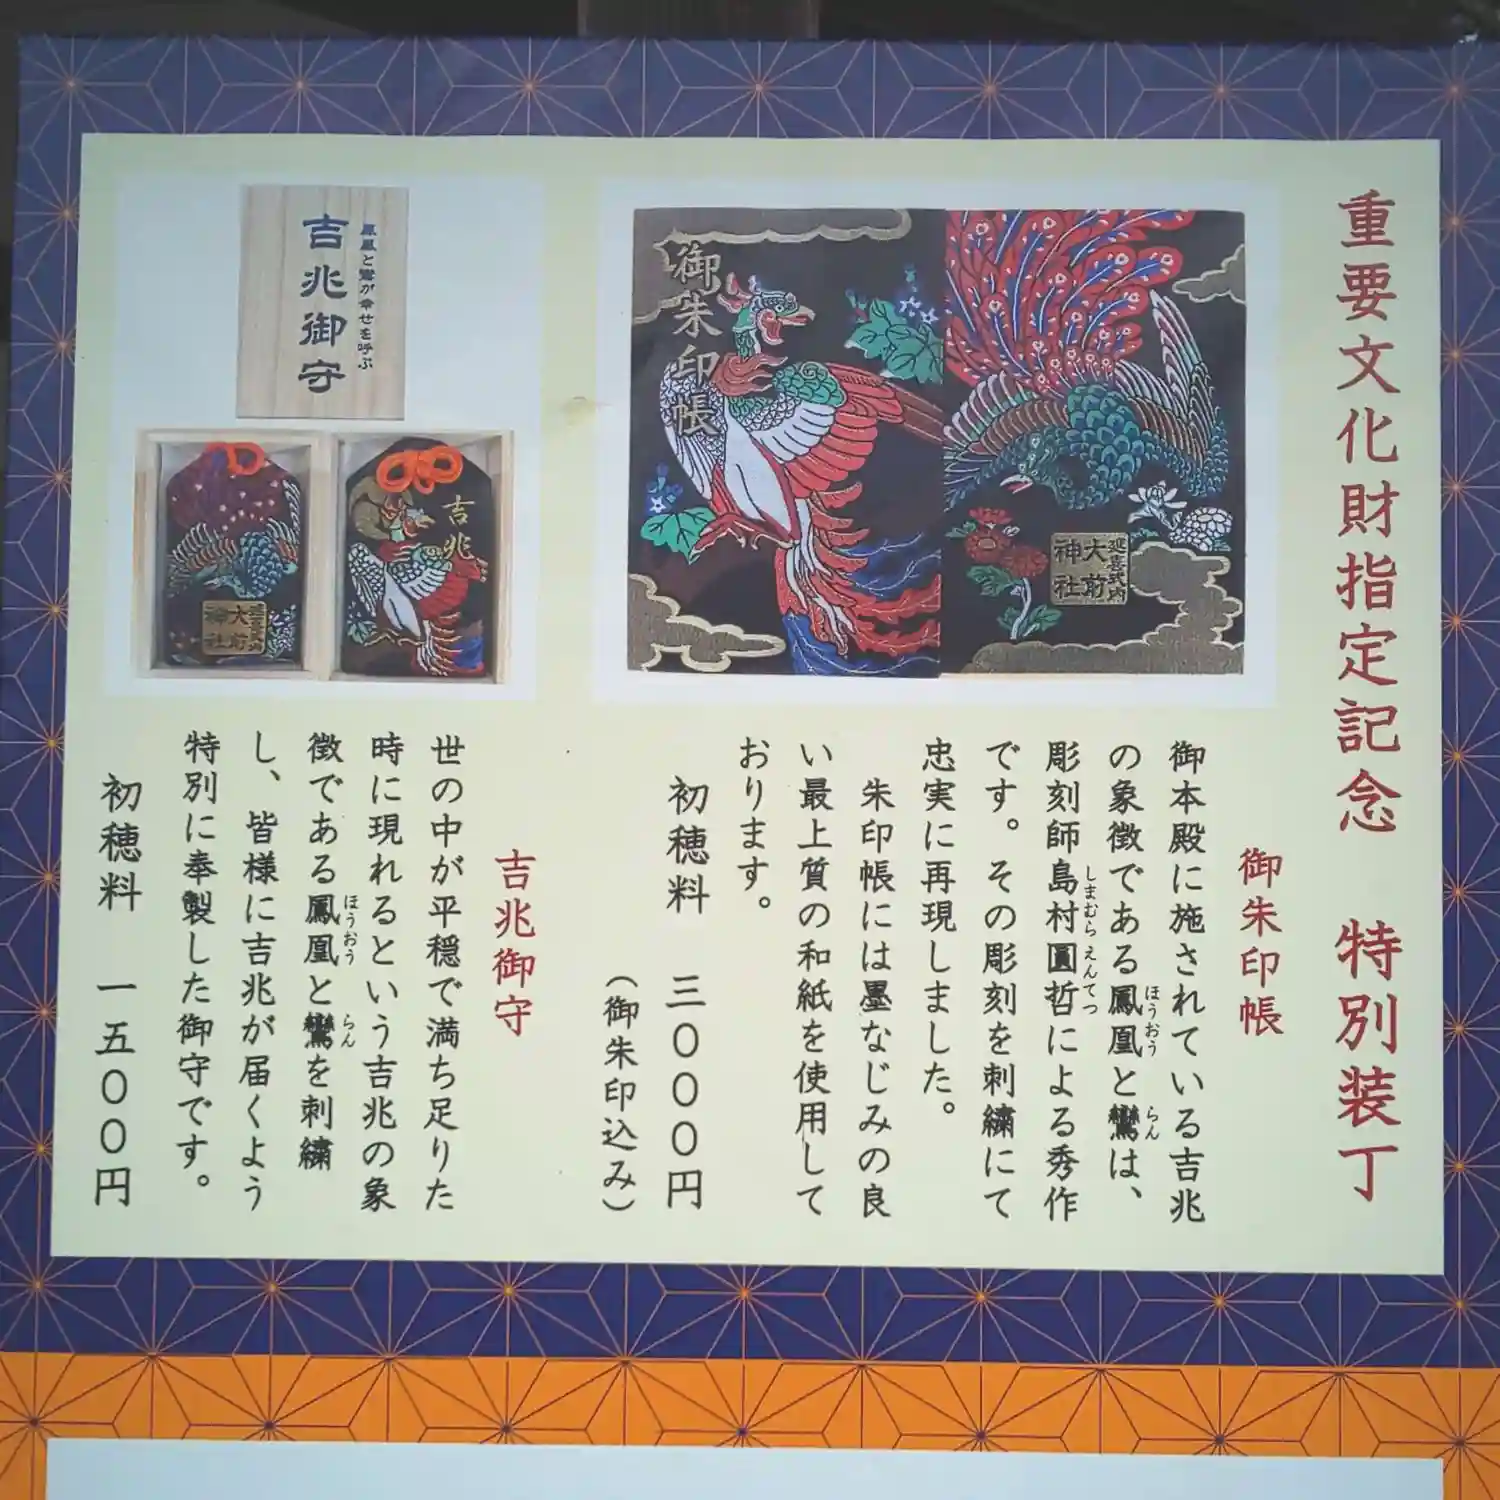 重要文化財指定記念　特別装丁
御朱印帳
延喜式内
大前
神社
御朱印帳
御本殿に施されている吉兆
の象徴である鳳凰と鸞は、
ほうおう
らん
彫刻師島村圓哲による秀作
しまむらえんてつ
です。その彫刻を刺繍にて
忠実に再現しました。
朱印帳には墨なじみの良
い最上質の和紙を使用して
おります。
初穂料　三０００円
（御朱印込み）
鳳凰と鸞が幸せを呼ぶ
吉兆御守
吉兆
延喜式内
大前
神社
吉兆御守
世の中が平穏で満ち足りた
時に現れるという吉兆の象
徴である鳳凰と鸞を刺繍
ほうおう
らん
し、皆様に吉兆が届くよう
特別に奉製した御守です。
初穂料　一五００円